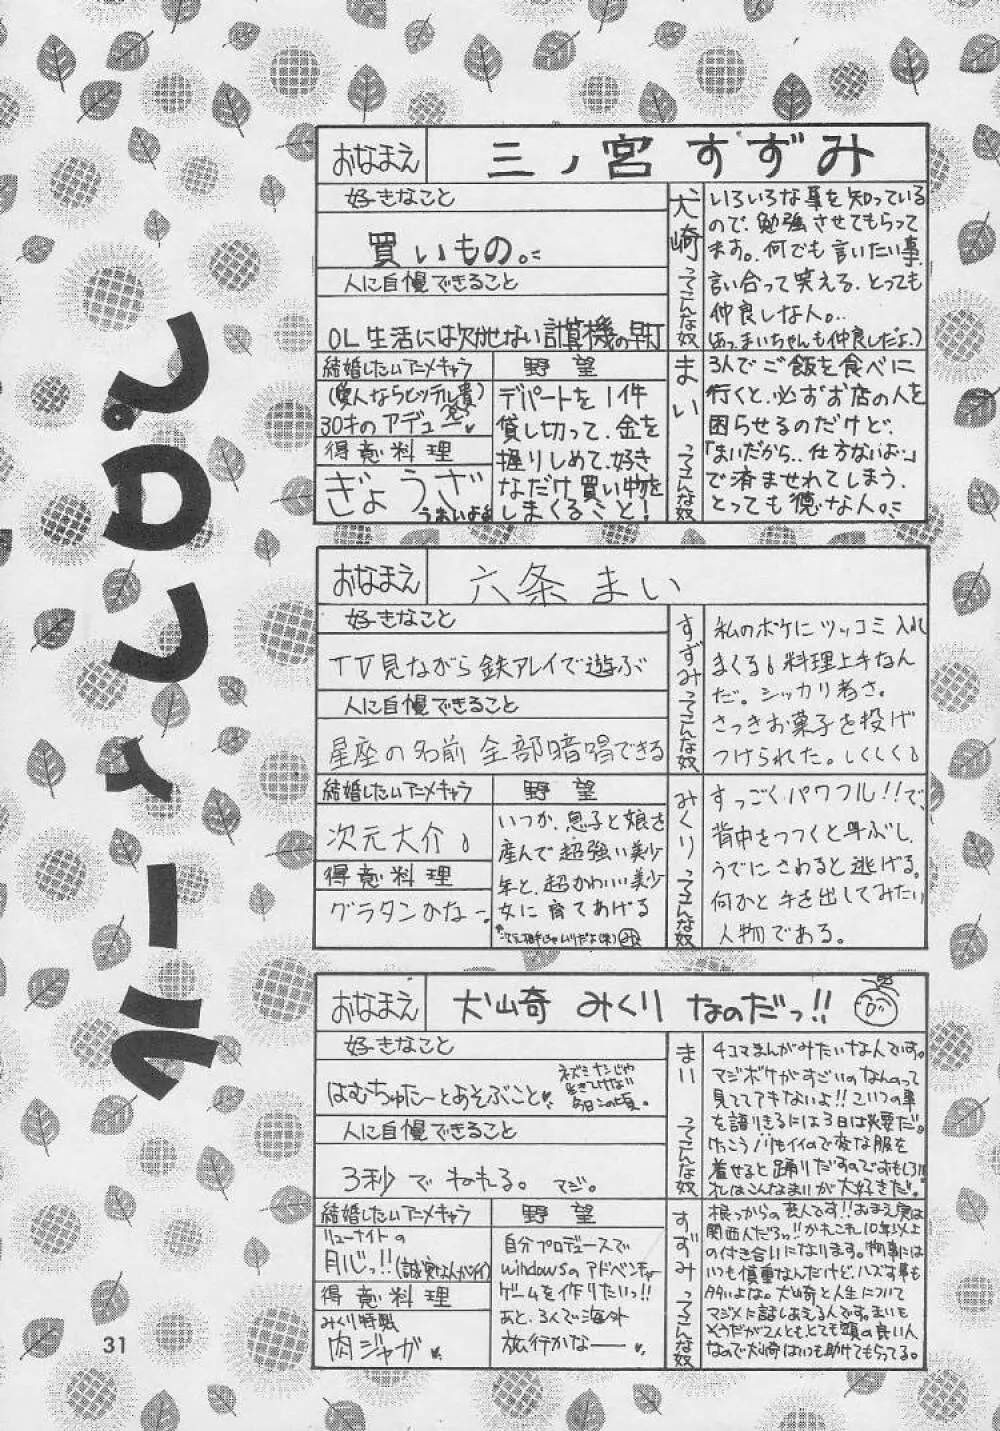 ぷろフィール
おなまえ
三ノ宮 すずみ
好きなこと
買いもの。
人に自慢できること
OL生活には欠かせない計算機の早打
結婚したいアニメキャラ
(愛人ならヒッテル貴)
30才のアデュー
得意料理
ぎょうざ
うまいよ
野望
デパートを1件
貸し切って、金を
握りしめて、好き
なだけ買い物を
しまくること!
犬崎ってこんな奴
いろいろな事を知っている
ので、勉強させてもらって
ます。何でも言いたい事
言い合って笑える、とっても
仲良しな人。
(あっ、まいちゃんも仲良しだよ)
まいってこんな奴
3人でご飯を食べに
行くと、必ずお店の人を
困らせるのだけど、
「まいだから、仕方ないよ」
で済ませれてしまう、
とっても徳な人。
おなまえ
六条まい
好きなこと
TV見ながら鉄アレイで遊ぶ
人に自慢できること
星座の名前 全部暗唱できる
結婚したいアニメキャラ
次元大介。
得意料理
グラタンかなー。
野望
いつか、息子と娘を
産んで超強い美少
年と、超かわいい美少
女に育てあげる
すずみってこんな奴
私のボケにツッコミ入れ
まくる。料理上手なん
だ。シッカリ者さ。
さっきお菓子を投げ
つけられた。しくしく。
みくりってこんな奴
すっごくパワフル!!で、
背中をつつくと叫ぶし、
うでにさわると逃げる。
何かと手を出してみたい
人物である。
おなまえ
犬山奇 みくり なのだっ!!
好きなこと
はむちゅたーとあそぶこと
ネズミナシじゃ
生きていけない
毎日この頃。
人に自慢できること
3秒でねれる。マジ。
結婚したいアニメキャラ
リューナイトの
月心っ!!(誠実な人がイイ)
得意料理
みくり特製
肉ジャガ
野望
自分プロデュースで
windowsのアドベンチャー
ゲームを作りたいっ!!
あと、3人で海外
旅行かなーー
まいってこんな奴
4コマまんがみたいな人です。
マジボケがすごいのなんのって
見ててあきないよ!!こいつの事
を語りきるには3日は必要だ。
けっこうノリもイイので変な服を
着せると踊りだすのでおもしろい
おれはこんなまいが大好きだ。
すずみってこんな奴
根っからの芸人です!!おまえ実は
関西人だろっ!!かれこれ10年以上
の付き合いになります。物事には
いつも慎重なんだけど、ハズす事も
多いよな。犬崎と人生について
マジメに話しあえる人です。まいも
そうだが2人ともとても頭の良い人
なので犬崎はいつも助けてもらってる。
31